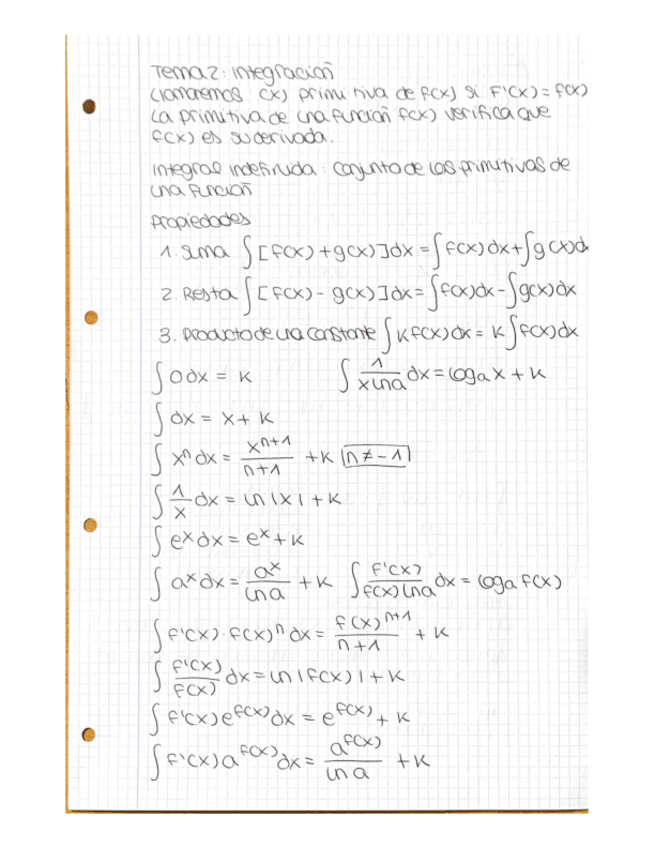 Tema 2: Integración
Llamaremos F(x) primitiva de f(x) si F'(x) = f(x)
La primitiva de una función f(x) verifica que
f(x) es su derivada.
Integral indefinida: conjunto de las primitivas de
una función
Propiedades
1. Suma ∫[f(x) + g(x)]dx = ∫f(x)dx + ∫g(x)d
2. Resta ∫[f(x) - g(x)]dx = ∫f(x)dx - ∫g(x)dx
3. Producto de una constante ∫K f(x)dx = K∫f(x)dx
∫0dx = K ∫1/(x ln a) dx = loga x + K
∫dx = x + K
∫xⁿdx = xⁿ⁺¹/(n+1) + K |n ≠ -1|
∫1/x dx = ln|x| + K
∫eˣdx = eˣ + K
∫aˣdx = aˣ/ln a + K ∫f'(x)/(f(x) ln a) dx = loga f(x)
∫f'(x)·f(x)ⁿdx = f(x)ⁿ⁺¹/(n+1) + K
∫f'(x)/f(x) dx = ln|f(x)| + K
∫f'(x)e^f(x)dx = e^f(x) + K
∫f'(x)a^f(x)dx = a^f(x)/ln a + K